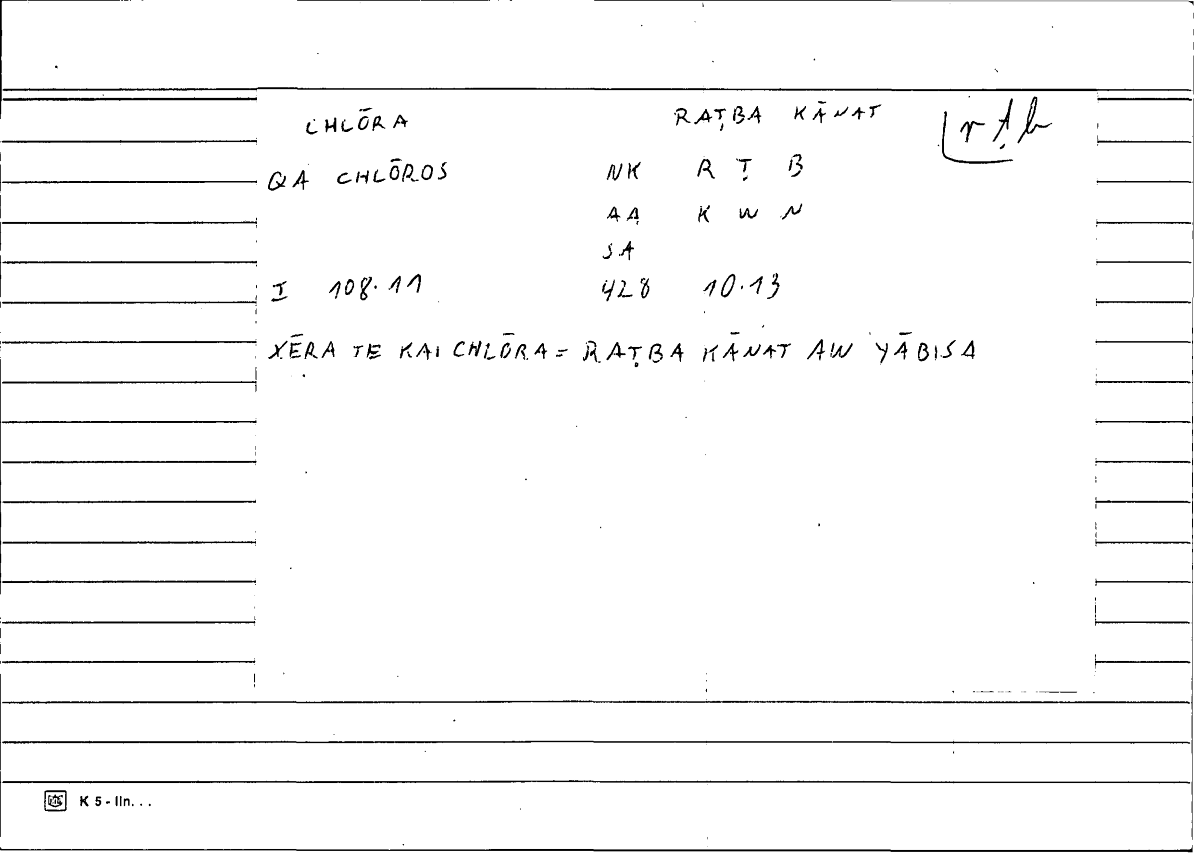 CHLŌRA RAṬBA KĀNAT rṭb
QA CHLŌROS NK R Ṭ B
AA K W N
SA
I 108.11 428 10.13
XĒRA TE KAI CHLŌRA = RAṬBA KĀNAT AW YĀBISA
K 5 - lIn. . .